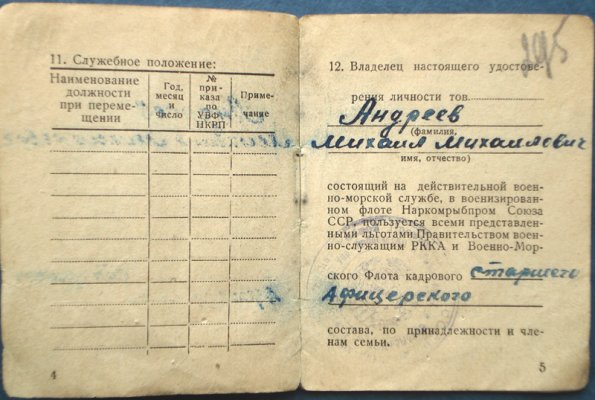 11. Служебное положение:
Наименование должности при перемещении
Год, месяц и число
№ приказа по УВФ НКРП
Примечание
4
12. Владелец настоящего удостове-
рения личности тов.
Андреев
(фамилия,
Михаил Михаилович
имя, отчество)
состоящий на действительной воен-
но-морской службе, в военизирован-
ном флоте Наркомрыбпром Союза
ССР, пользуется всеми представлен-
ными льготами Правительством воен-
но-служащим РККА и Военно-Мор-
ского Флота кадрового старшего
Афицерского
состава, по принадлежности и чле-
нам семьи.
5